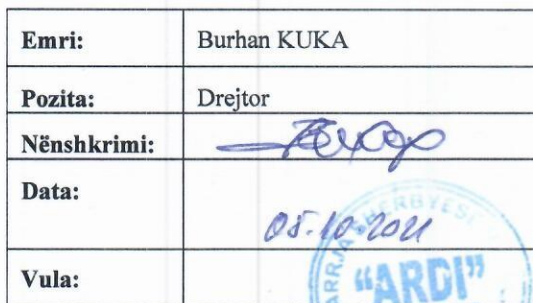 Emri: Burhan KUKA
Pozita: Drejtor
Nënshkrimi:
Data: 05.10.2021
Vula: "ARDI"